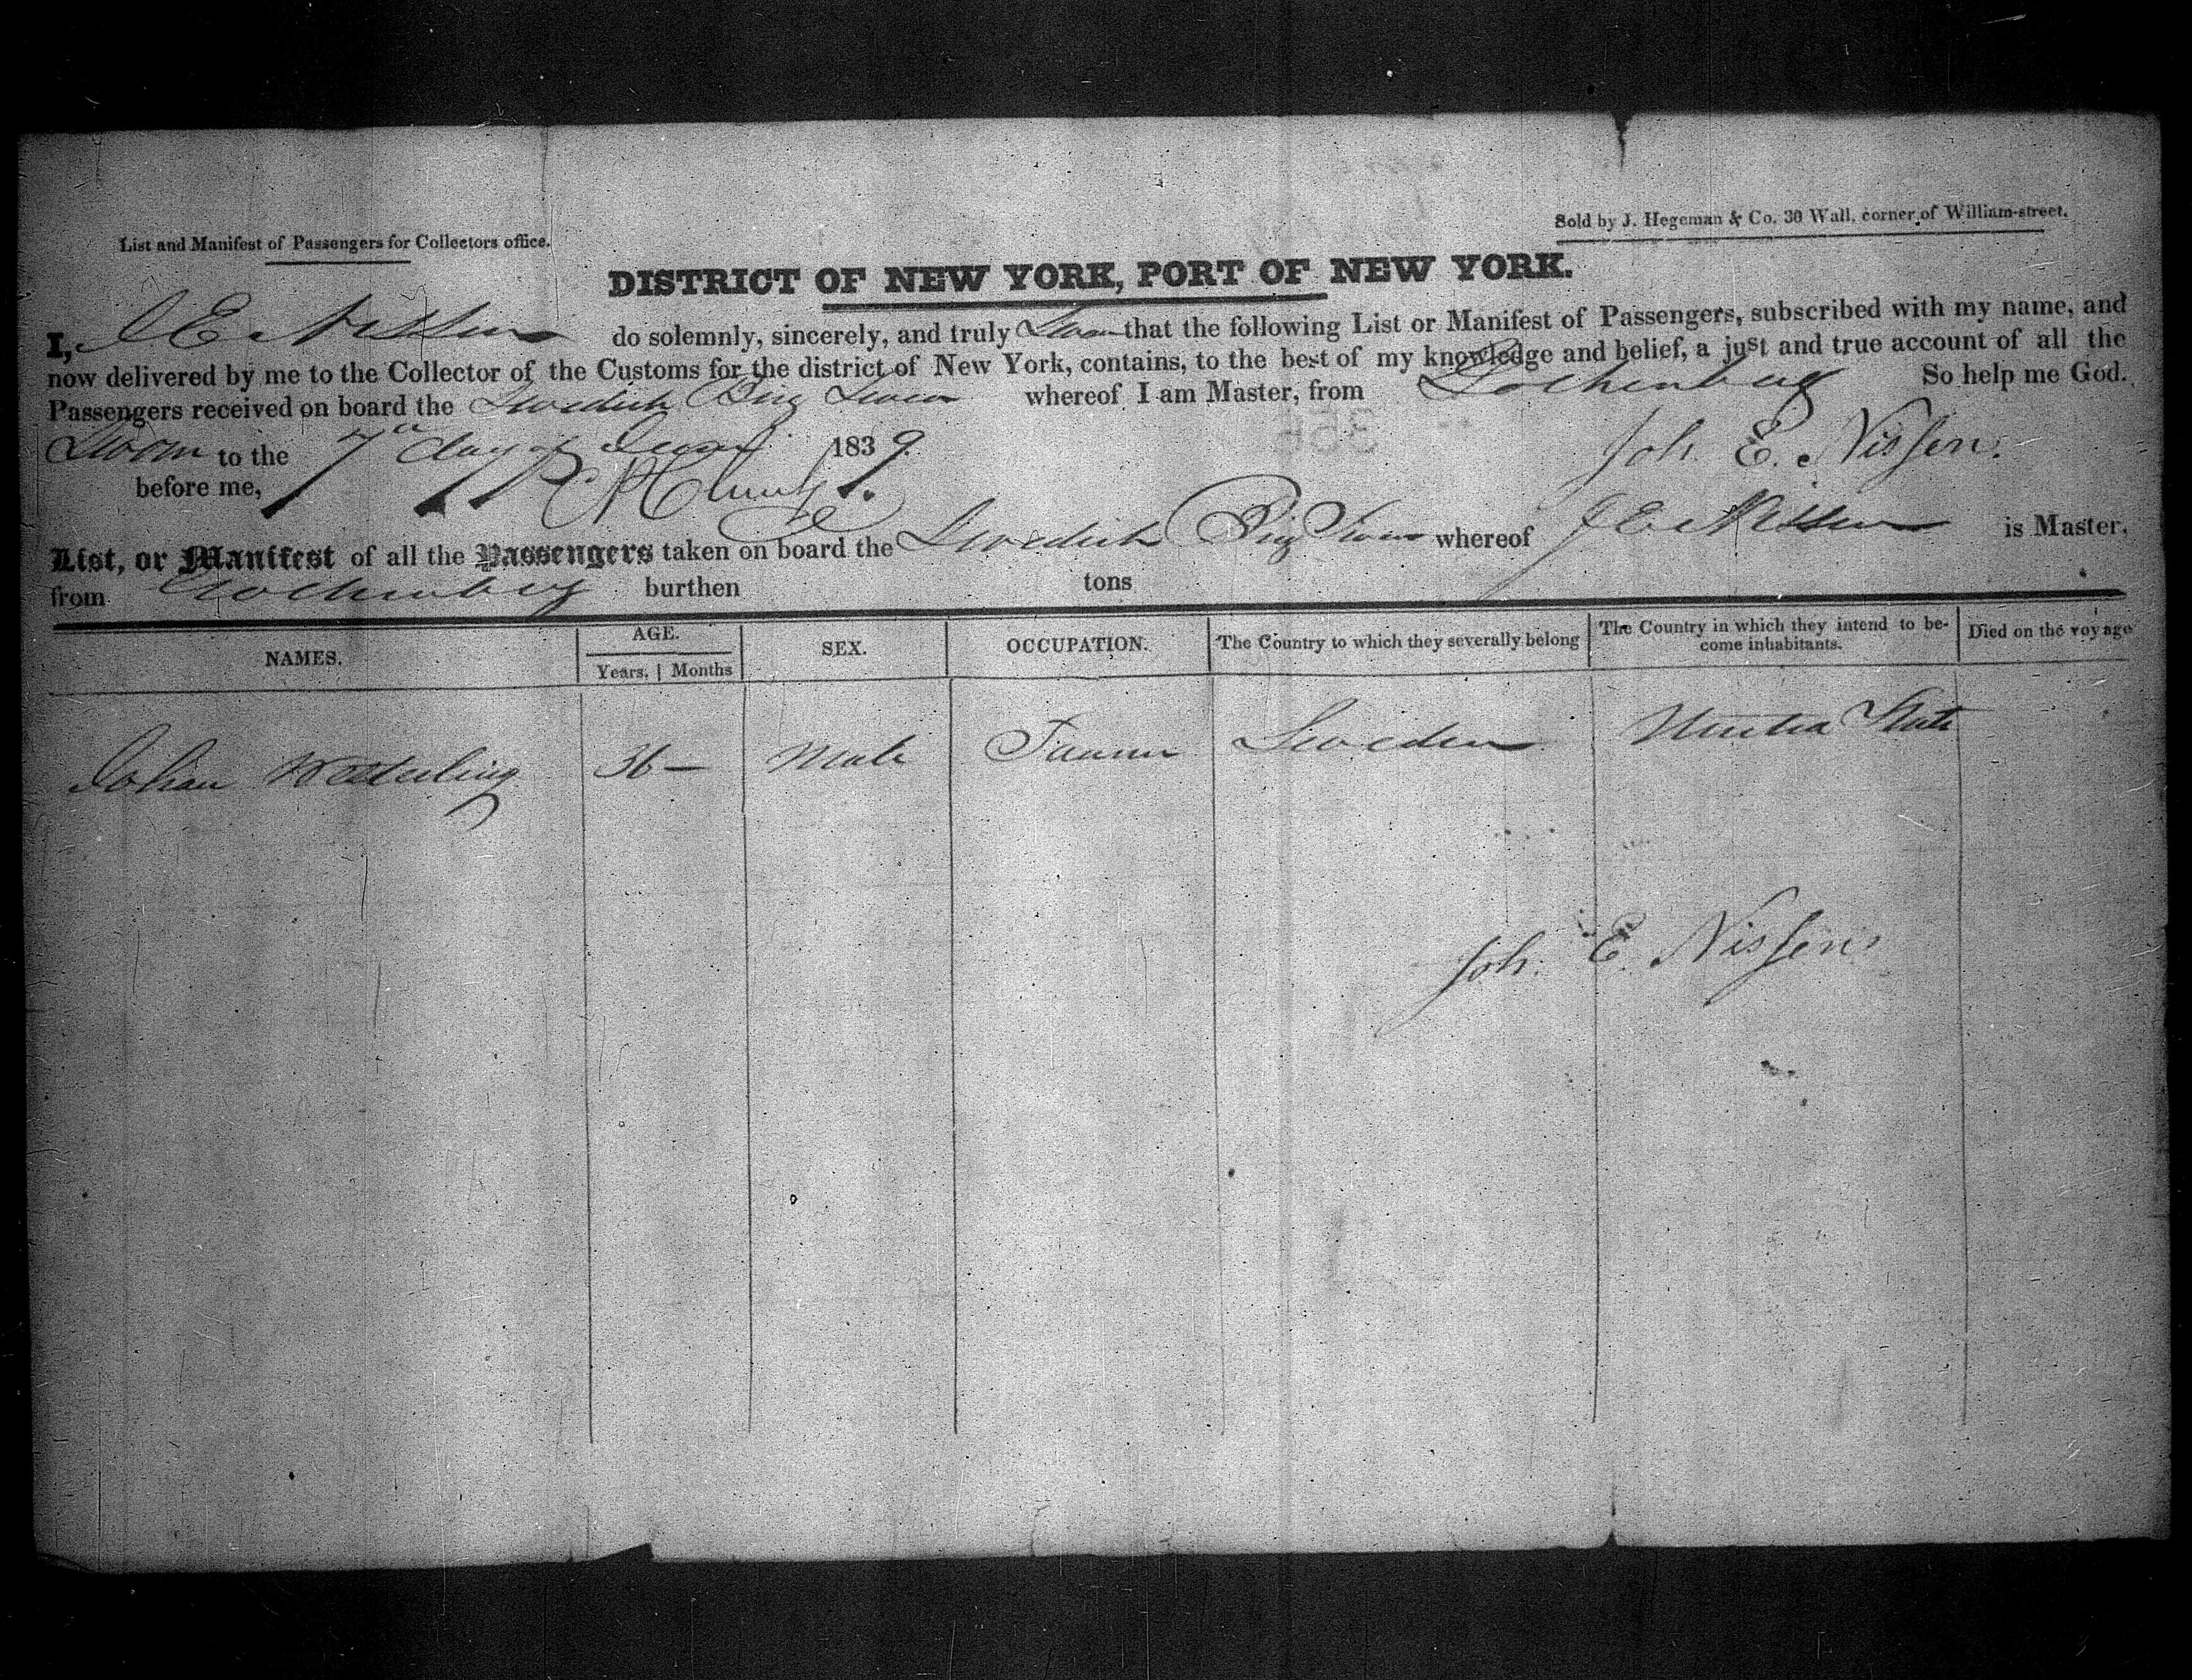 List and Manifest of Passengers for Collectors office.
Sold by J. Hegeman & Co. 30 Wall, corner of William-street.
DISTRICT OF NEW YORK, PORT OF NEW YORK.
I, J E Nissen do solemnly, sincerely, and truly Swear that the following List or Manifest of Passengers, subscribed with my name, and
now delivered by me to the Collector of the Customs for the district of New York, contains, to the best of my knowledge and belief, a just and true account of all the
Passengers received on board the Swedish Brig whereof I am Master, from Gothenburg So help me God.
Sworn to the 7th day of 1839. Joh. E. Nissen.
before me,
List, or Manifest of all the Passengers taken on board the Swedish Brig whereof J E Nissen is Master,
from Gothenburg burthen tons
NAMES. AGE. Years. Months SEX. OCCUPATION. The Country to which they severally belong The Country in which they intend to become inhabitants. Died on the voyage
Johan Wetterling 36 — Male Sweden United State
Joh. E. Nissen